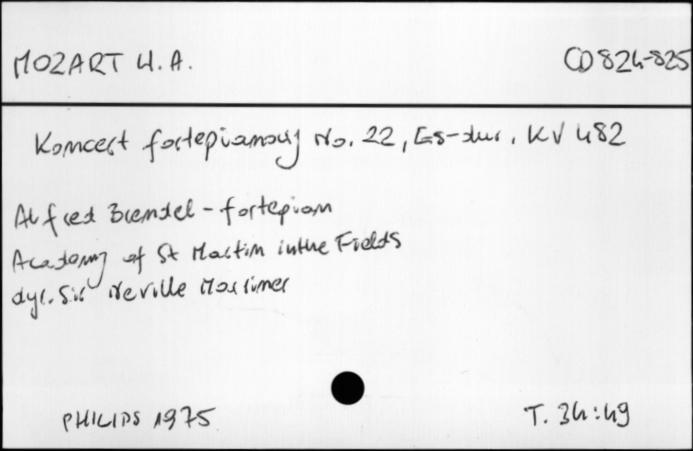 MOZART W.A.
CD 824-825
Koncert fortepianowy No. 22, Es-dur, KV 482
Alfred Brendel - fortepian
Academy of St Martin in the Fields
dyr. Sir Neville Marriner
PHILIPS 1975
T. 34:49